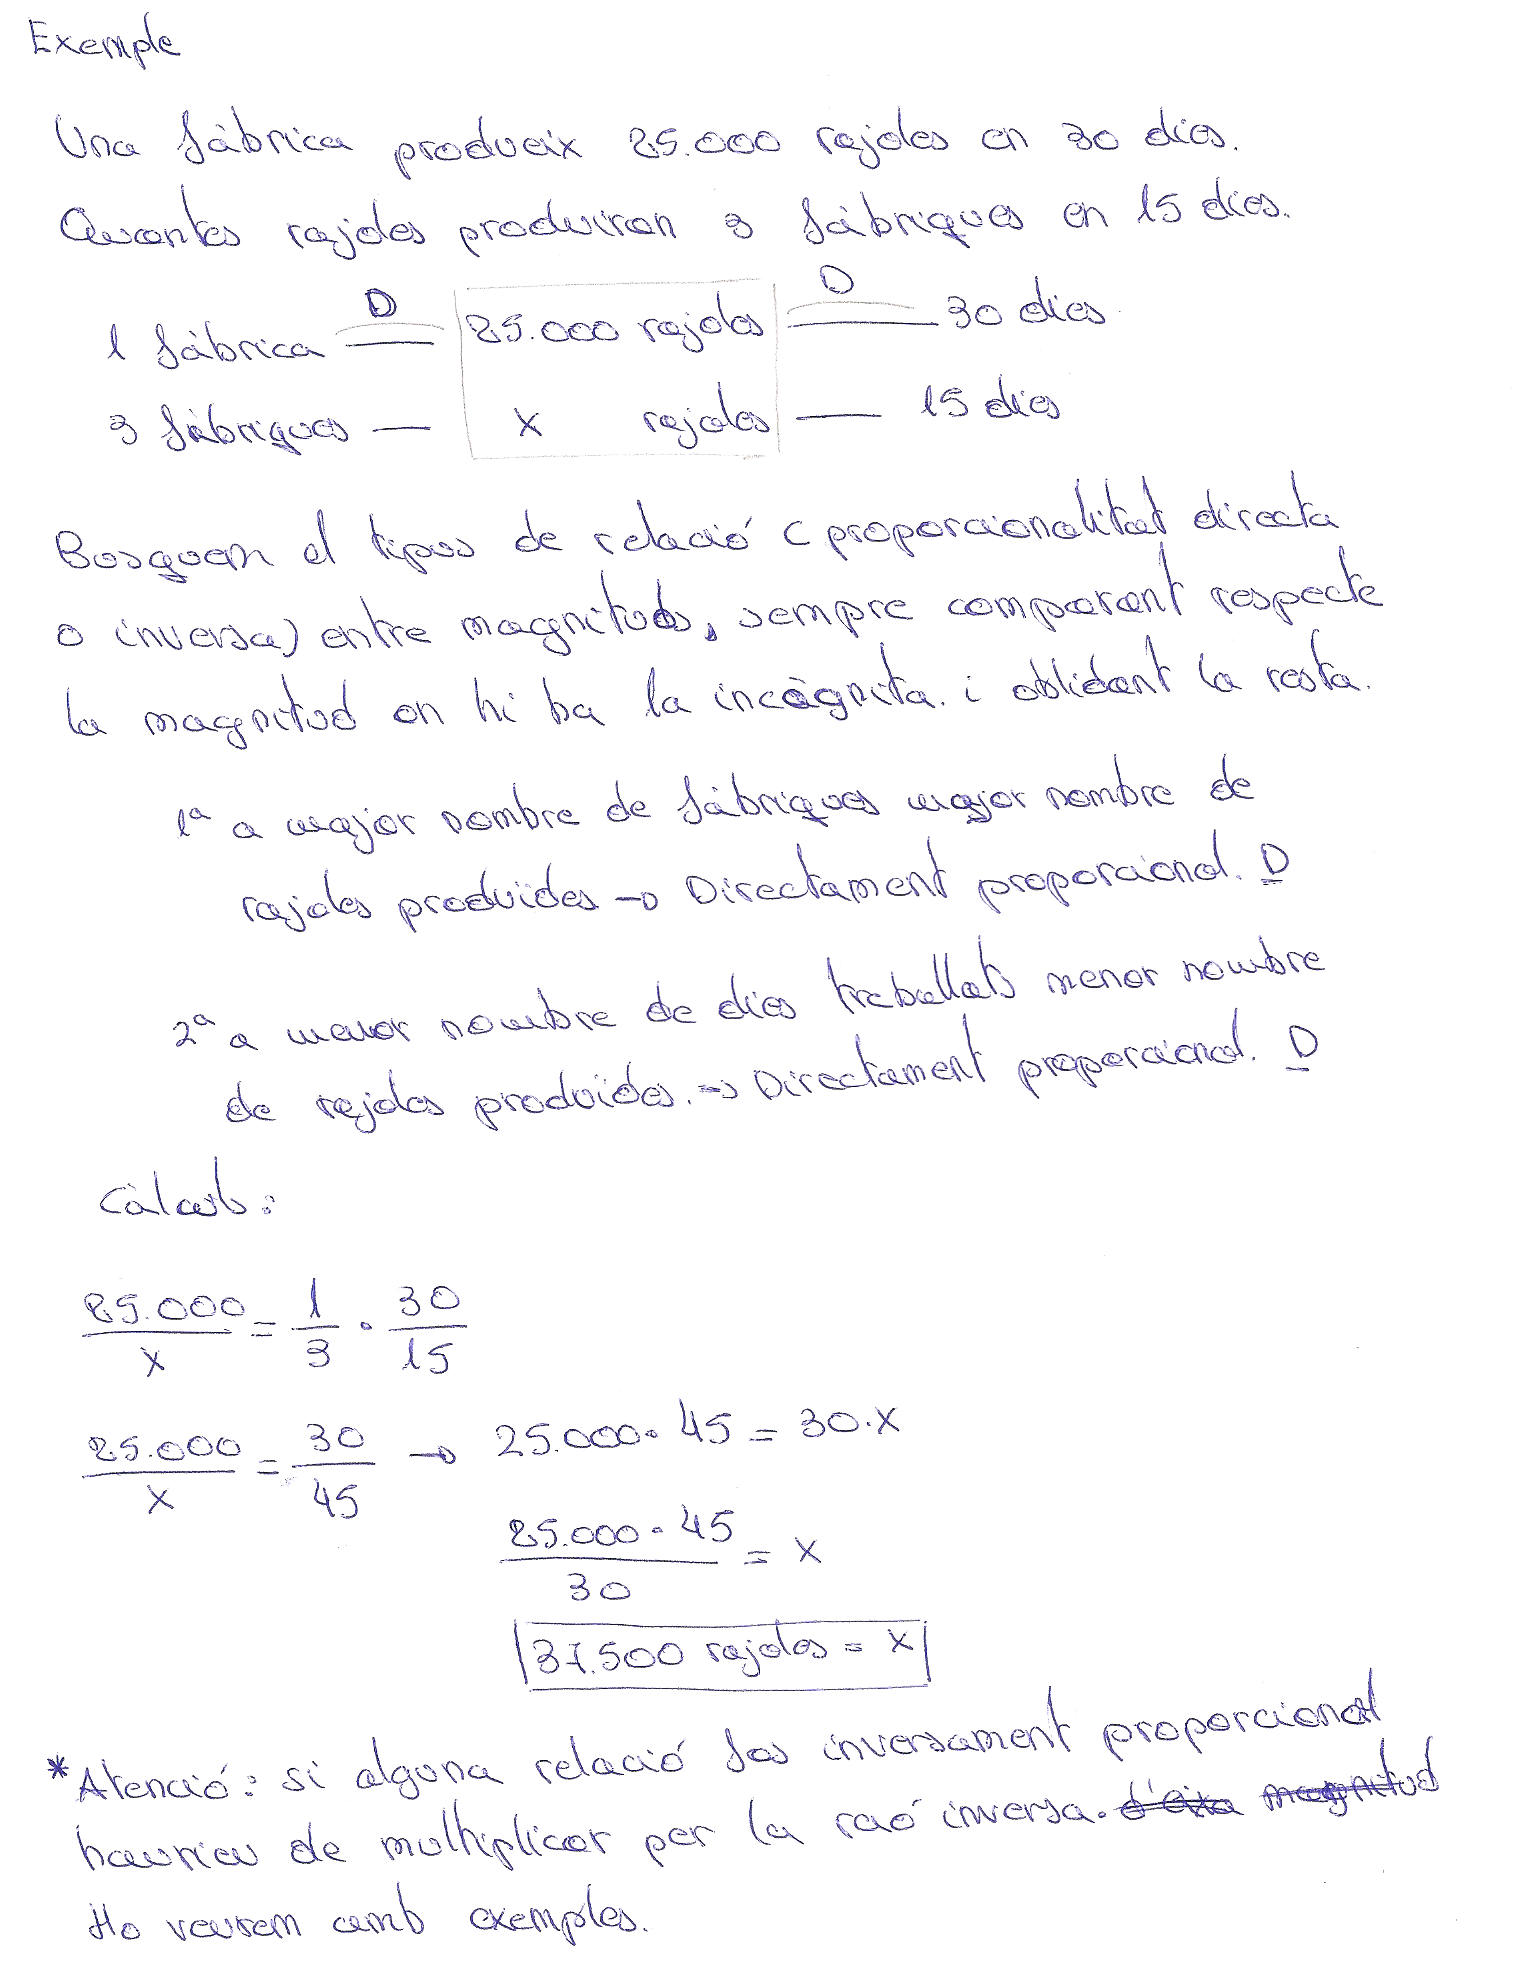 Exemple
Una fàbrica produeix 25.000 rajoles en 30 dies.
Quantes rajoles produiran 3 fàbriques en 15 dies.
D D
1 fàbrica — 25.000 rajoles — 30 dies
3 fàbriques — x rajoles — 15 dies
Busquem el tipus de relació (proporcionalitat directa
o inversa) entre magnituds, sempre comparant respecte
la magnitud on hi ha la incògnita. i oblidant la resta.
1ª a major nombre de fàbriques major nombre de
rajoles produïdes → Directament proporcional. D
2ª a menor nombre de dies treballats menor nombre
de rajoles produïdes. → Directament proporcional. D
Càlculs:
25.000/x = 1/3 · 30/15
25.000/x = 30/45 → 25.000 · 45 = 30·x
25.000 · 45/30 = x
37.500 rajoles = x
*Atenció: si alguna relació fos inversament proporcional
hauríeu de multiplicar per la raó inversa. d'eixa magnitud
Ho veurem amb exemples.